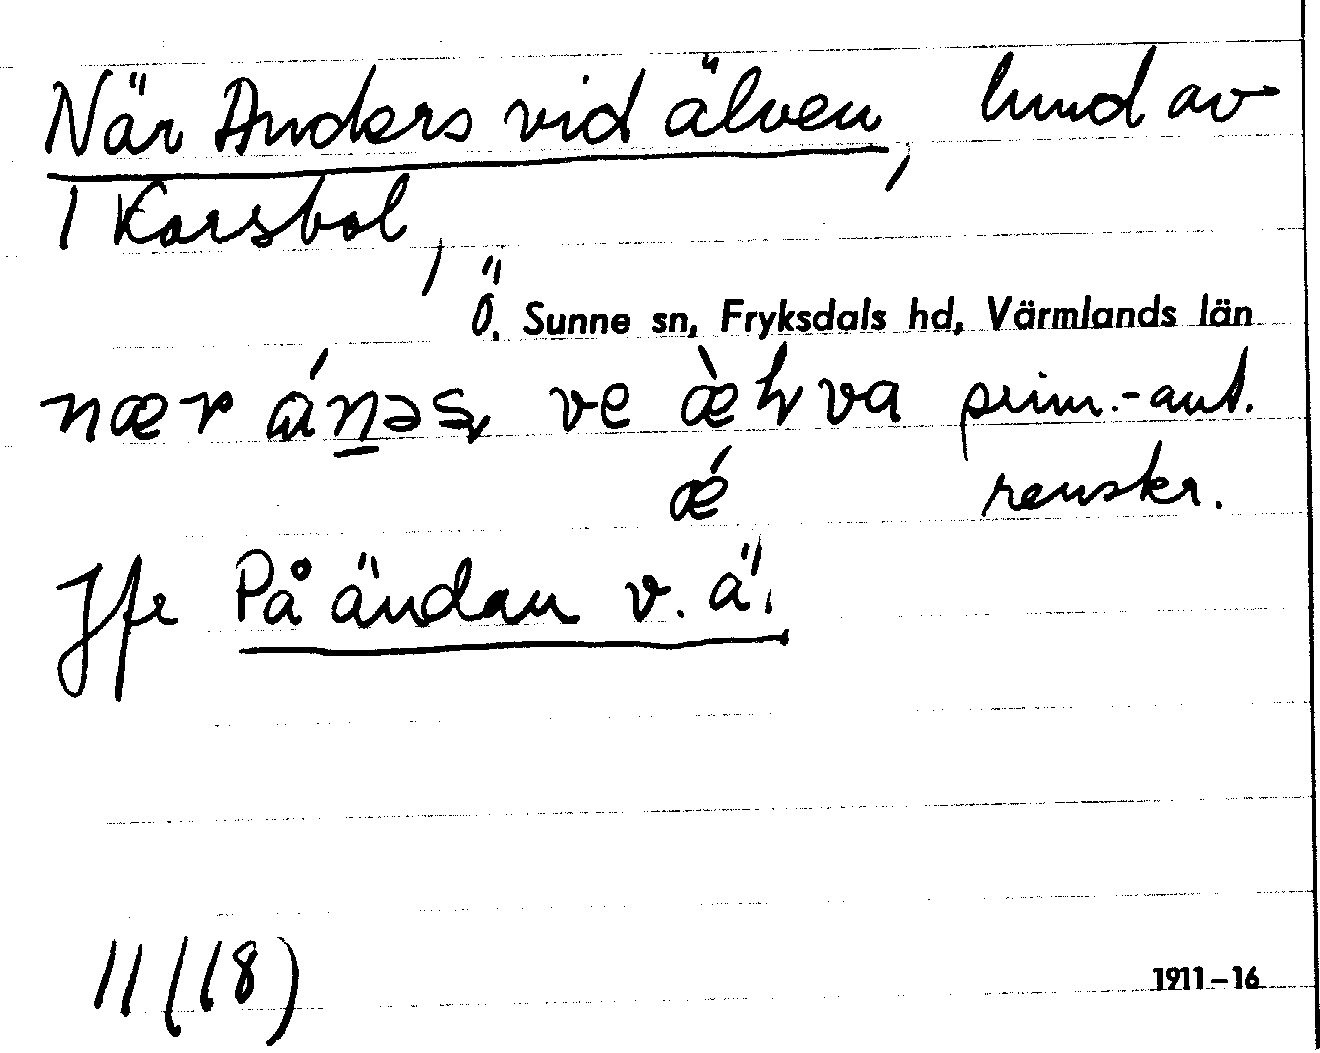 När Anders vid älven, lund av
1 Korsbol,
Ö. Sunne sn, Fryksdals hd, Värmlands län
nær ánəs ve æ̀ƚva prim.-ant.
ǽ renskr.
Jfr På ändan v. ä.
11 (18)
1911–16